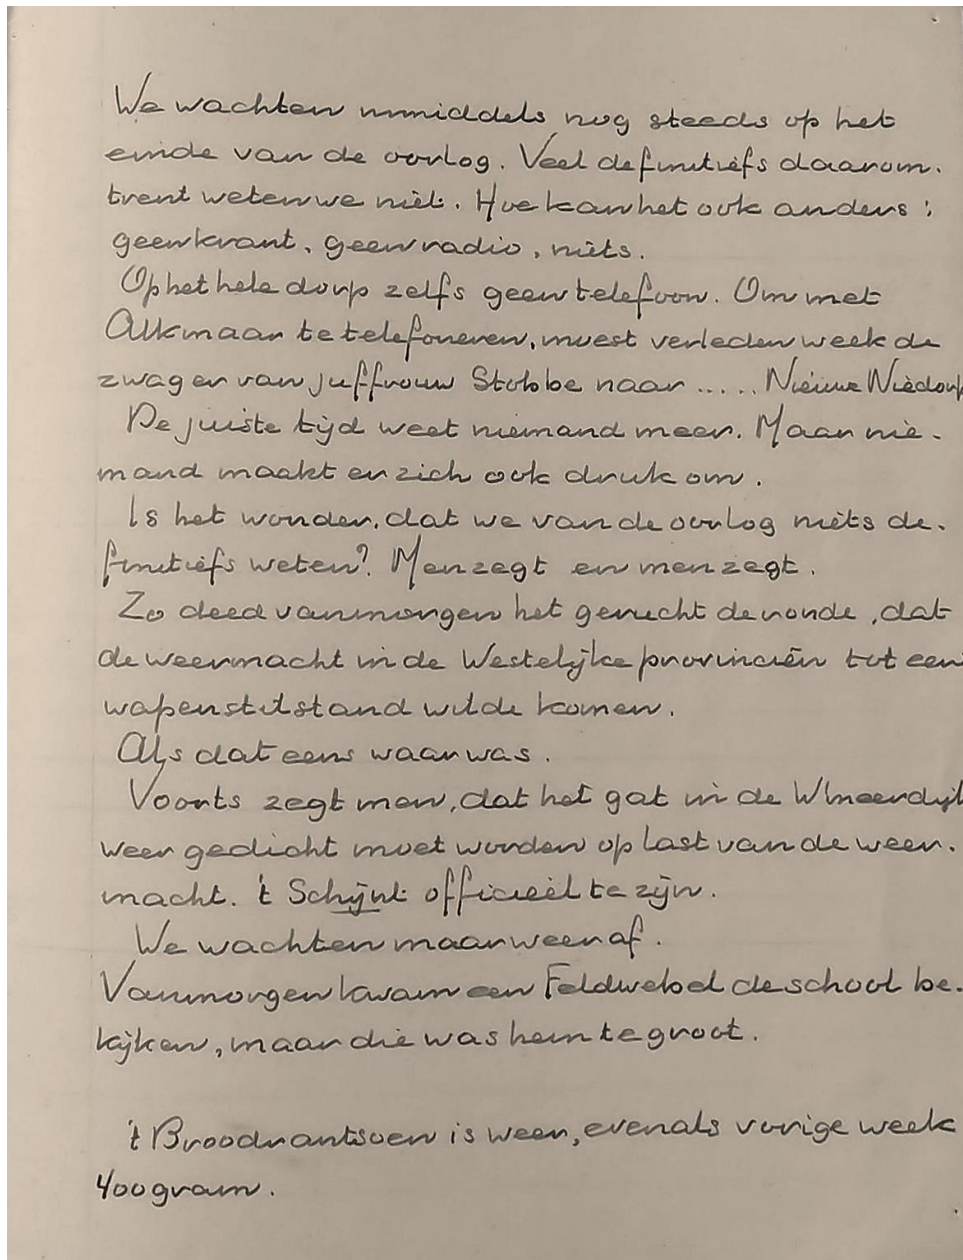 We wachten inmiddels nog steeds op het
einde van de oorlog. Veel definitiefs daarom-
trent weten we niet. Hoe kan het ook anders;
geen krant, geen radio, niets.
Op het hele dorp zelfs geen telefoon. Om met
Alkmaar te telefoneren, moest verleden week de
zwager van juffrouw Stobbe naar ..... Nieuwe Niedorp
De juiste tijd weet niemand meer. Maar nie-
mand maakt er zich ook druk om.
Is het wonder, dat we van de oorlog niets de-
finitiefs weten? Men zegt en men zegt.
Zo deed vanmorgen het gerucht de ronde, dat
de weermacht in de Westelijke provinciën tot een
wapenstilstand wilde komen.
Als dat eens waar was.
Voorts zegt men, dat het gat in de W'meerdijk
weer gedicht moet worden op last van de weer-
macht. 't Schijnt officiëel te zijn.
We wachten maar weer af.
Vanmorgen kwam een Feldwebel de school be-
kijken, maar die was hem te groot.
't Broodrantsoen is weer, evenals vorige week
400 gram.